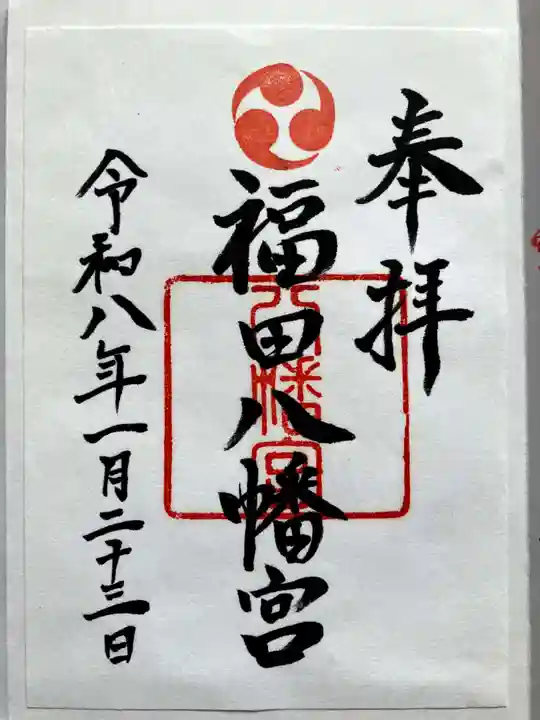 奉拝
福田八幡宮
八幡宮
令和八年一月二十三日